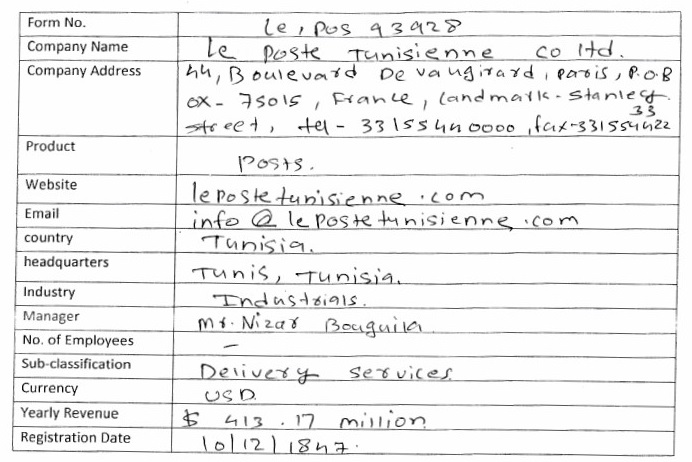 Form No. le, pos 93928
Company Name Le Poste Tunisienne co ltd.
Company Address 44, Boulevard De vaugirard, paris, P.O.B
ox - 75015, France, landmark - Stanley
street, tel - 33155440000, fax-331554422
33
Product Posts.
Website lepostetunisienne.com
Email info@lepostetunisienne.com
country Tunisia.
headquarters Tunis, Tunisia.
Industry Industrials.
Manager Mr. Nizar Bouguila
No. of Employees –
Sub-classification Delivery services.
Currency USD.
Yearly Revenue $ 413.17 million
Registration Date 10/12/1847.